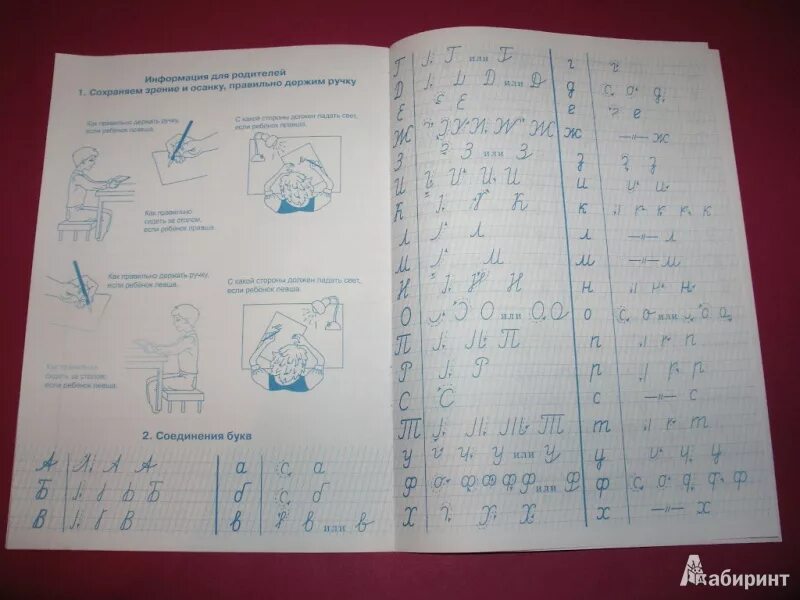 Информация для родителей
1. Сохраняем зрение и осанку, правильно держим ручку
Как правильно держать ручку,
если ребёнок правша.
С какой стороны должен падать свет,
если ребёнок правша.
Как правильно
сидеть за столом,
если ребёнок правша
Как правильно держать ручку,
если ребёнок левша.
С какой стороны должен падать свет,
если ребёнок левша.
Как правильно
сидеть за столом,
если ребёнок левша.
2. Соединения букв
А А А а с а
Б б Б б с б
В б В в в или в
Г Г или Г г г
D D или D д с о д
Е Е г г
Ж Ж ж —〃— ж
З З или З з з з
И И И и и и
К К к г к к к
Л Л л —〃— л
М М м —〃— м
Н Н н н н
О О О или О О о с о или о о
П П п г п
Р Р р г р
С С с —〃— с
Т Т т г т
У У или У у и у у
Ф Ф Ф Ф или Ф ф с о ф ф
Х Х Х х —〃— х
Лабиринт